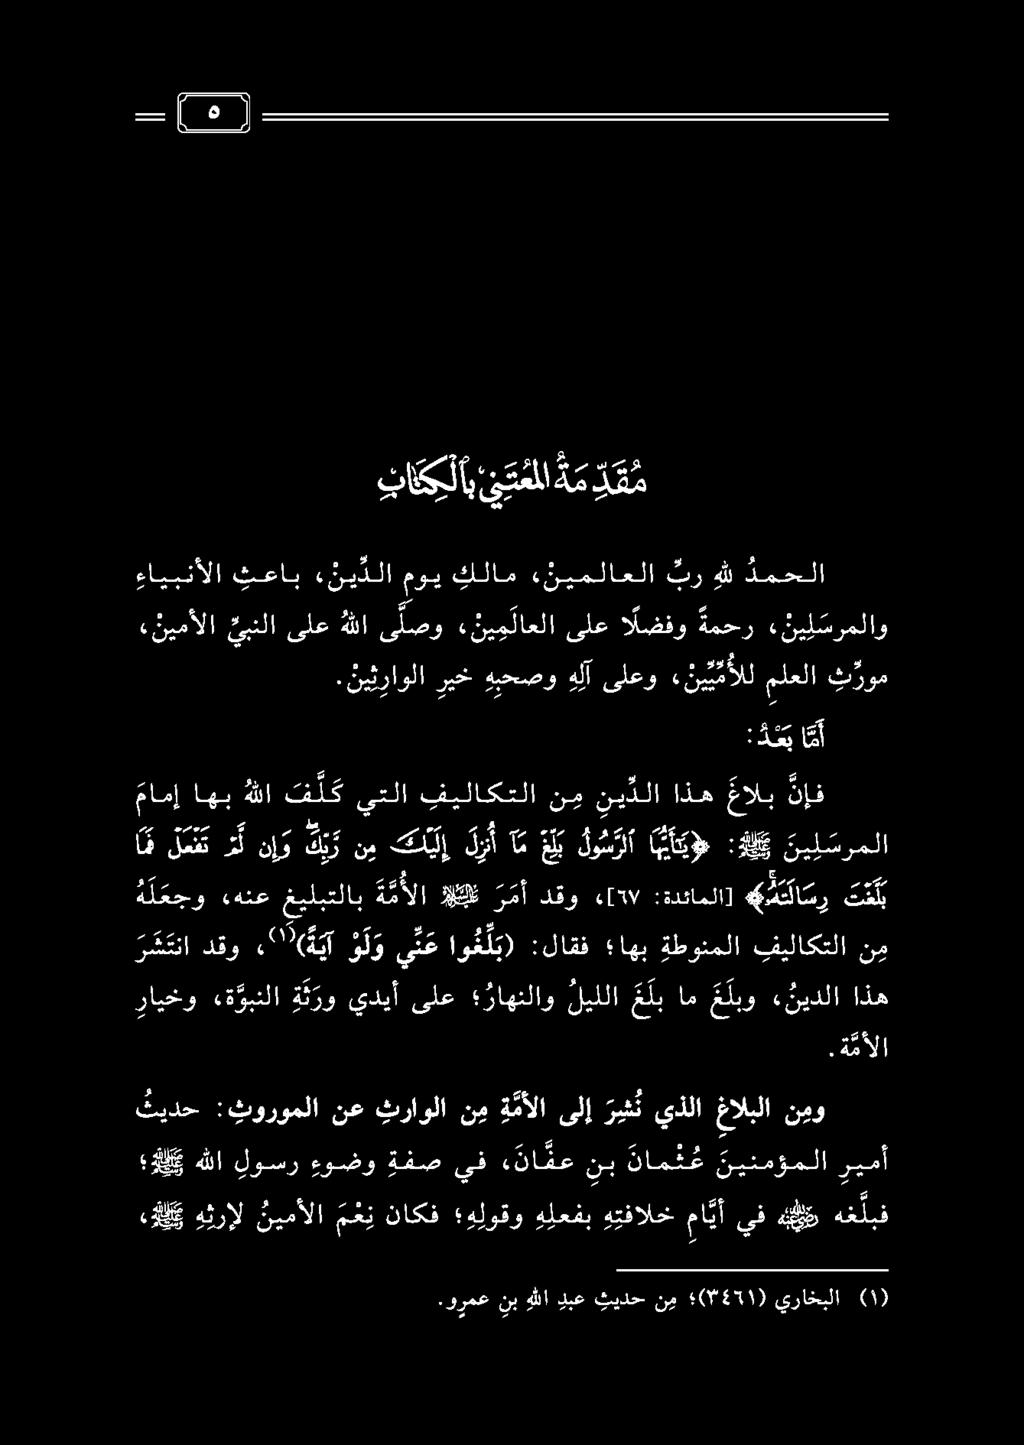 ٥
مُقَدِّمَةُ المُعْتَنِي بِالْكِتَابِ
الـحـمـدُ للهِ ربِّ الـعـالـمـيـنْ، مـالـكِ يـومِ الـدِّيـنْ، بـاعـثِ الأنـبـيـاءِ
والمرسَلِينْ، رحمةً وفضلًا على العالَمِينْ، وصلَّى اللهُ على النبيِّ الأمينْ،
مورِّثِ العلمِ للأُمِّيِّينْ، وعلى آلِهِ وصحبِهِ خيرِ الوارِثِينْ.
أَمَّا بَعْدُ:
فـإنَّ بـلاغَ هـذا الـدِّيـنِ مِـن الـتـكـالـيـفِ الـتـي كَـلَّـفَ اللهُ بـهـا إمـامَ
المرسَلِينَ ﷺ: ﴿يَٰٓأَيُّهَا ٱلرَّسُولُ بَلِّغۡ مَآ أُنزِلَ إِلَيۡكَ مِن رَّبِّكَۖ وَإِن لَّمۡ تَفۡعَلۡ فَمَا
بَلَّغۡتَ رِسَالَتَهُۥۚ﴾ [المائدة: ٦٧]، وقد أمَرَ ﷺ الأُمَّةَ بالتبليغِ عنه، وجعَلَهُ
مِن التكاليفِ المنوطةِ بها؛ فقال: (بَلِّغُوا عَنِّي وَلَوْ آيَةً)(١)، وقد انتَشَرَ
هذا الدينُ، وبلَغَ ما بلَغَ الليلُ والنهارُ؛ على أيدي ورَثَةِ النبوَّة، وخيارِ
الأمَّة.
ومِن البلاغِ الذي نُشِرَ إلى الأمَّةِ مِن الوارثِ عن الموروثِ: حديثُ
أمـيـرِ الـمـؤمـنـيـنَ عُـثْـمـانَ بـنِ عـفَّـانَ، فـي صـفـةِ وضـوءِ رسـولِ الله ﷺ؛
فبلَّغه رضي الله عنه في أيَّامِ خلافتِهِ بفعلِهِ وقولِهِ؛ فكان نِعْمَ الأمينُ لإرثِهِ ﷺ،
(١) البخاري (٣٤٦١)؛ مِن حديثِ عبدِ اللهِ بنِ عمرٍو.